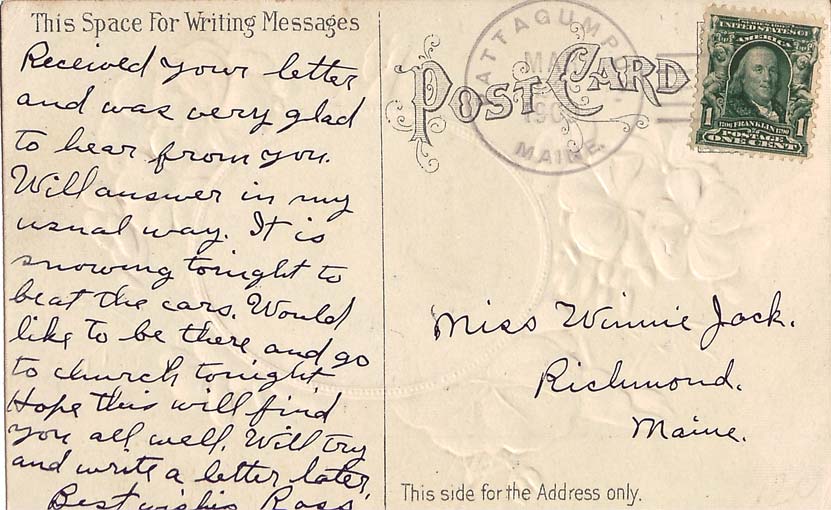 This Space For Writing Messages
Received your letter
and was very glad
to hear from you.
Will answer in my
usual way. It is
snowing tonight to
beat the cars. Would
like to be there and go
to church tonight
Hope this will find
you all well. Will try
and write a letter later.
Best wishes Ross
POST CARD
MAINE.
UNITED STATES OF
AMERICA
1 1
FRANKLIN
POSTAGE
ONE CENT
Miss Winnie Jack.
Richmond.
Maine.
This side for the Address only.